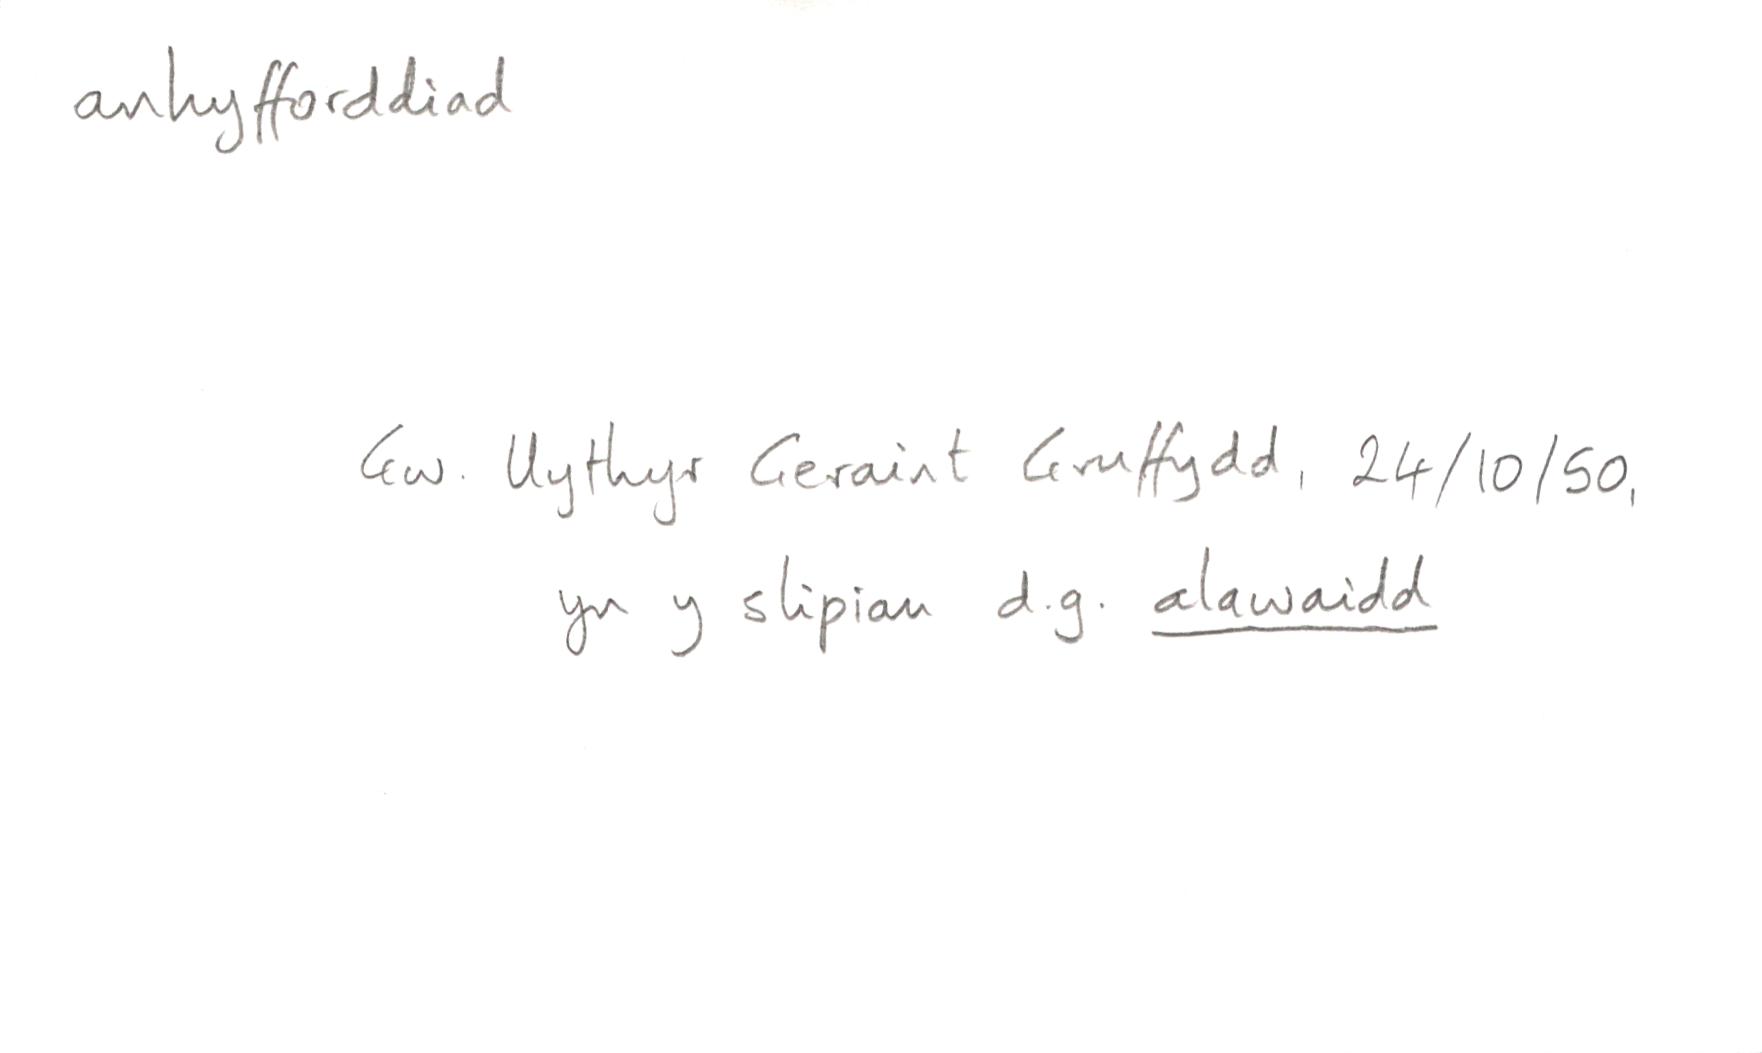 anhyfforddiad
Gw. llythyr Geraint Gruffydd, 24/10/50,
yn y slipiau d.g. alawaidd